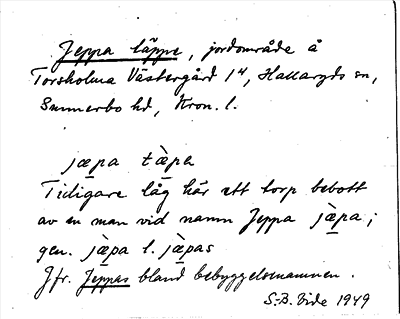 Jeppa täppe, jordområde å
Torsholma Västergård 1⁴, Hallaryds sn,
Sunnerbo hd, Kron. l.
jæpa tæ̀pa
Tidigare låg här ett torp bebott
av en man vid namn Jeppa jæ̀pa;
gen. jæ̀pa l. jæ̀pas
Jfr. Jeppas bland bebyggelsenamnen.
S.-B. Vide 1949